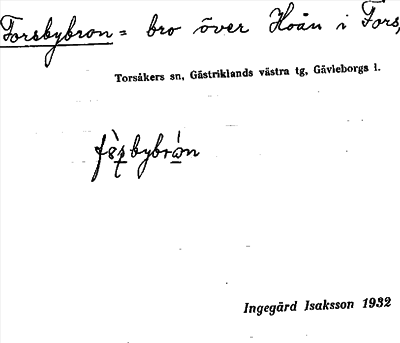 Forsbybron = bro över Hoån i Fors,
Torsåkers sn, Gästriklands västra tg, Gävleborgs l.
Ingegärd Isaksson 1932